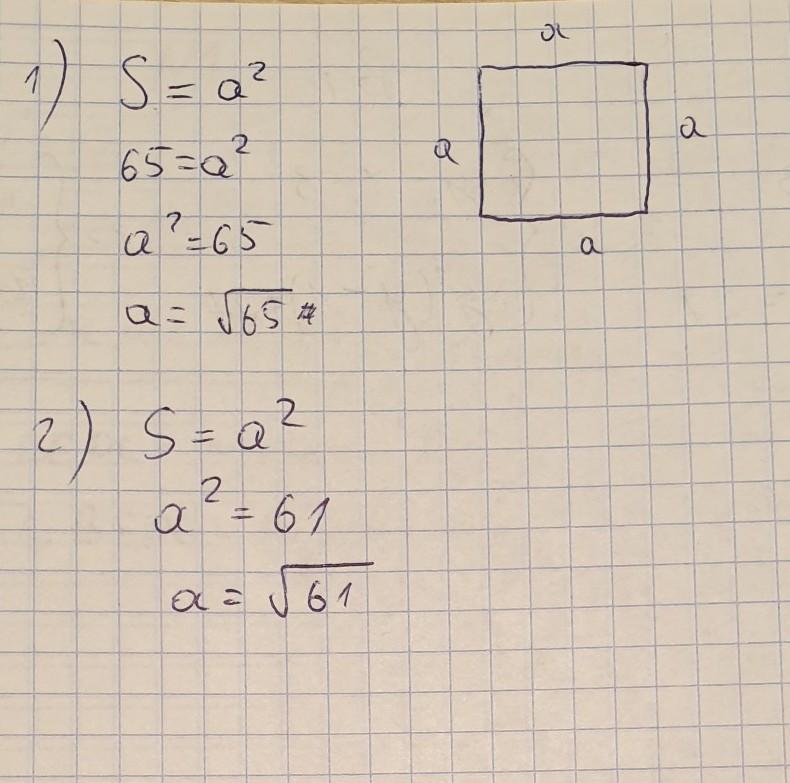 1) S = a²
65 = a²
a² = 65
a = √65 #
a
a
a
a
2) S = a²
a² = 61
a = √61